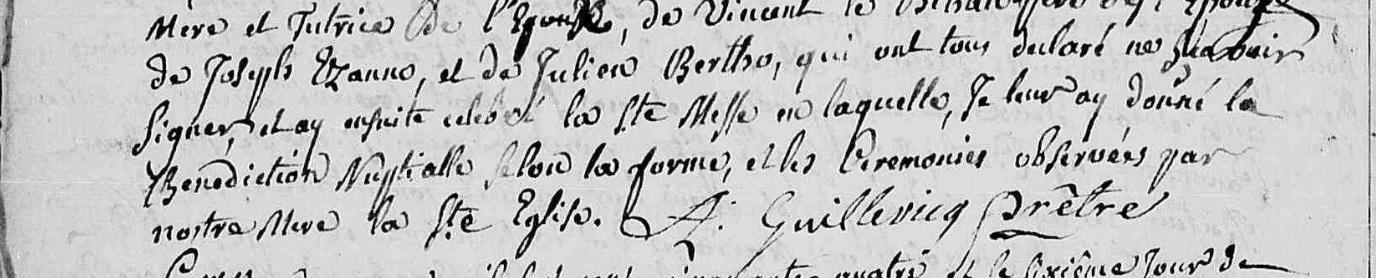 Mere et Tutrice de l'Epouse, de Vincent le
de Joseph Ezanno, et de Julien Bertho, qui ont tous declaré ne sçavoir
signer, et ay ensuite celebré la Ste Messe en laquelle, Je leur ay donné la
Benediction Nuptialle selon la forme, et les Ceremonies observées par
nostre Mere la Ste Eglise. Guillevicq Prêtre
quatre et le sixiême Jour de